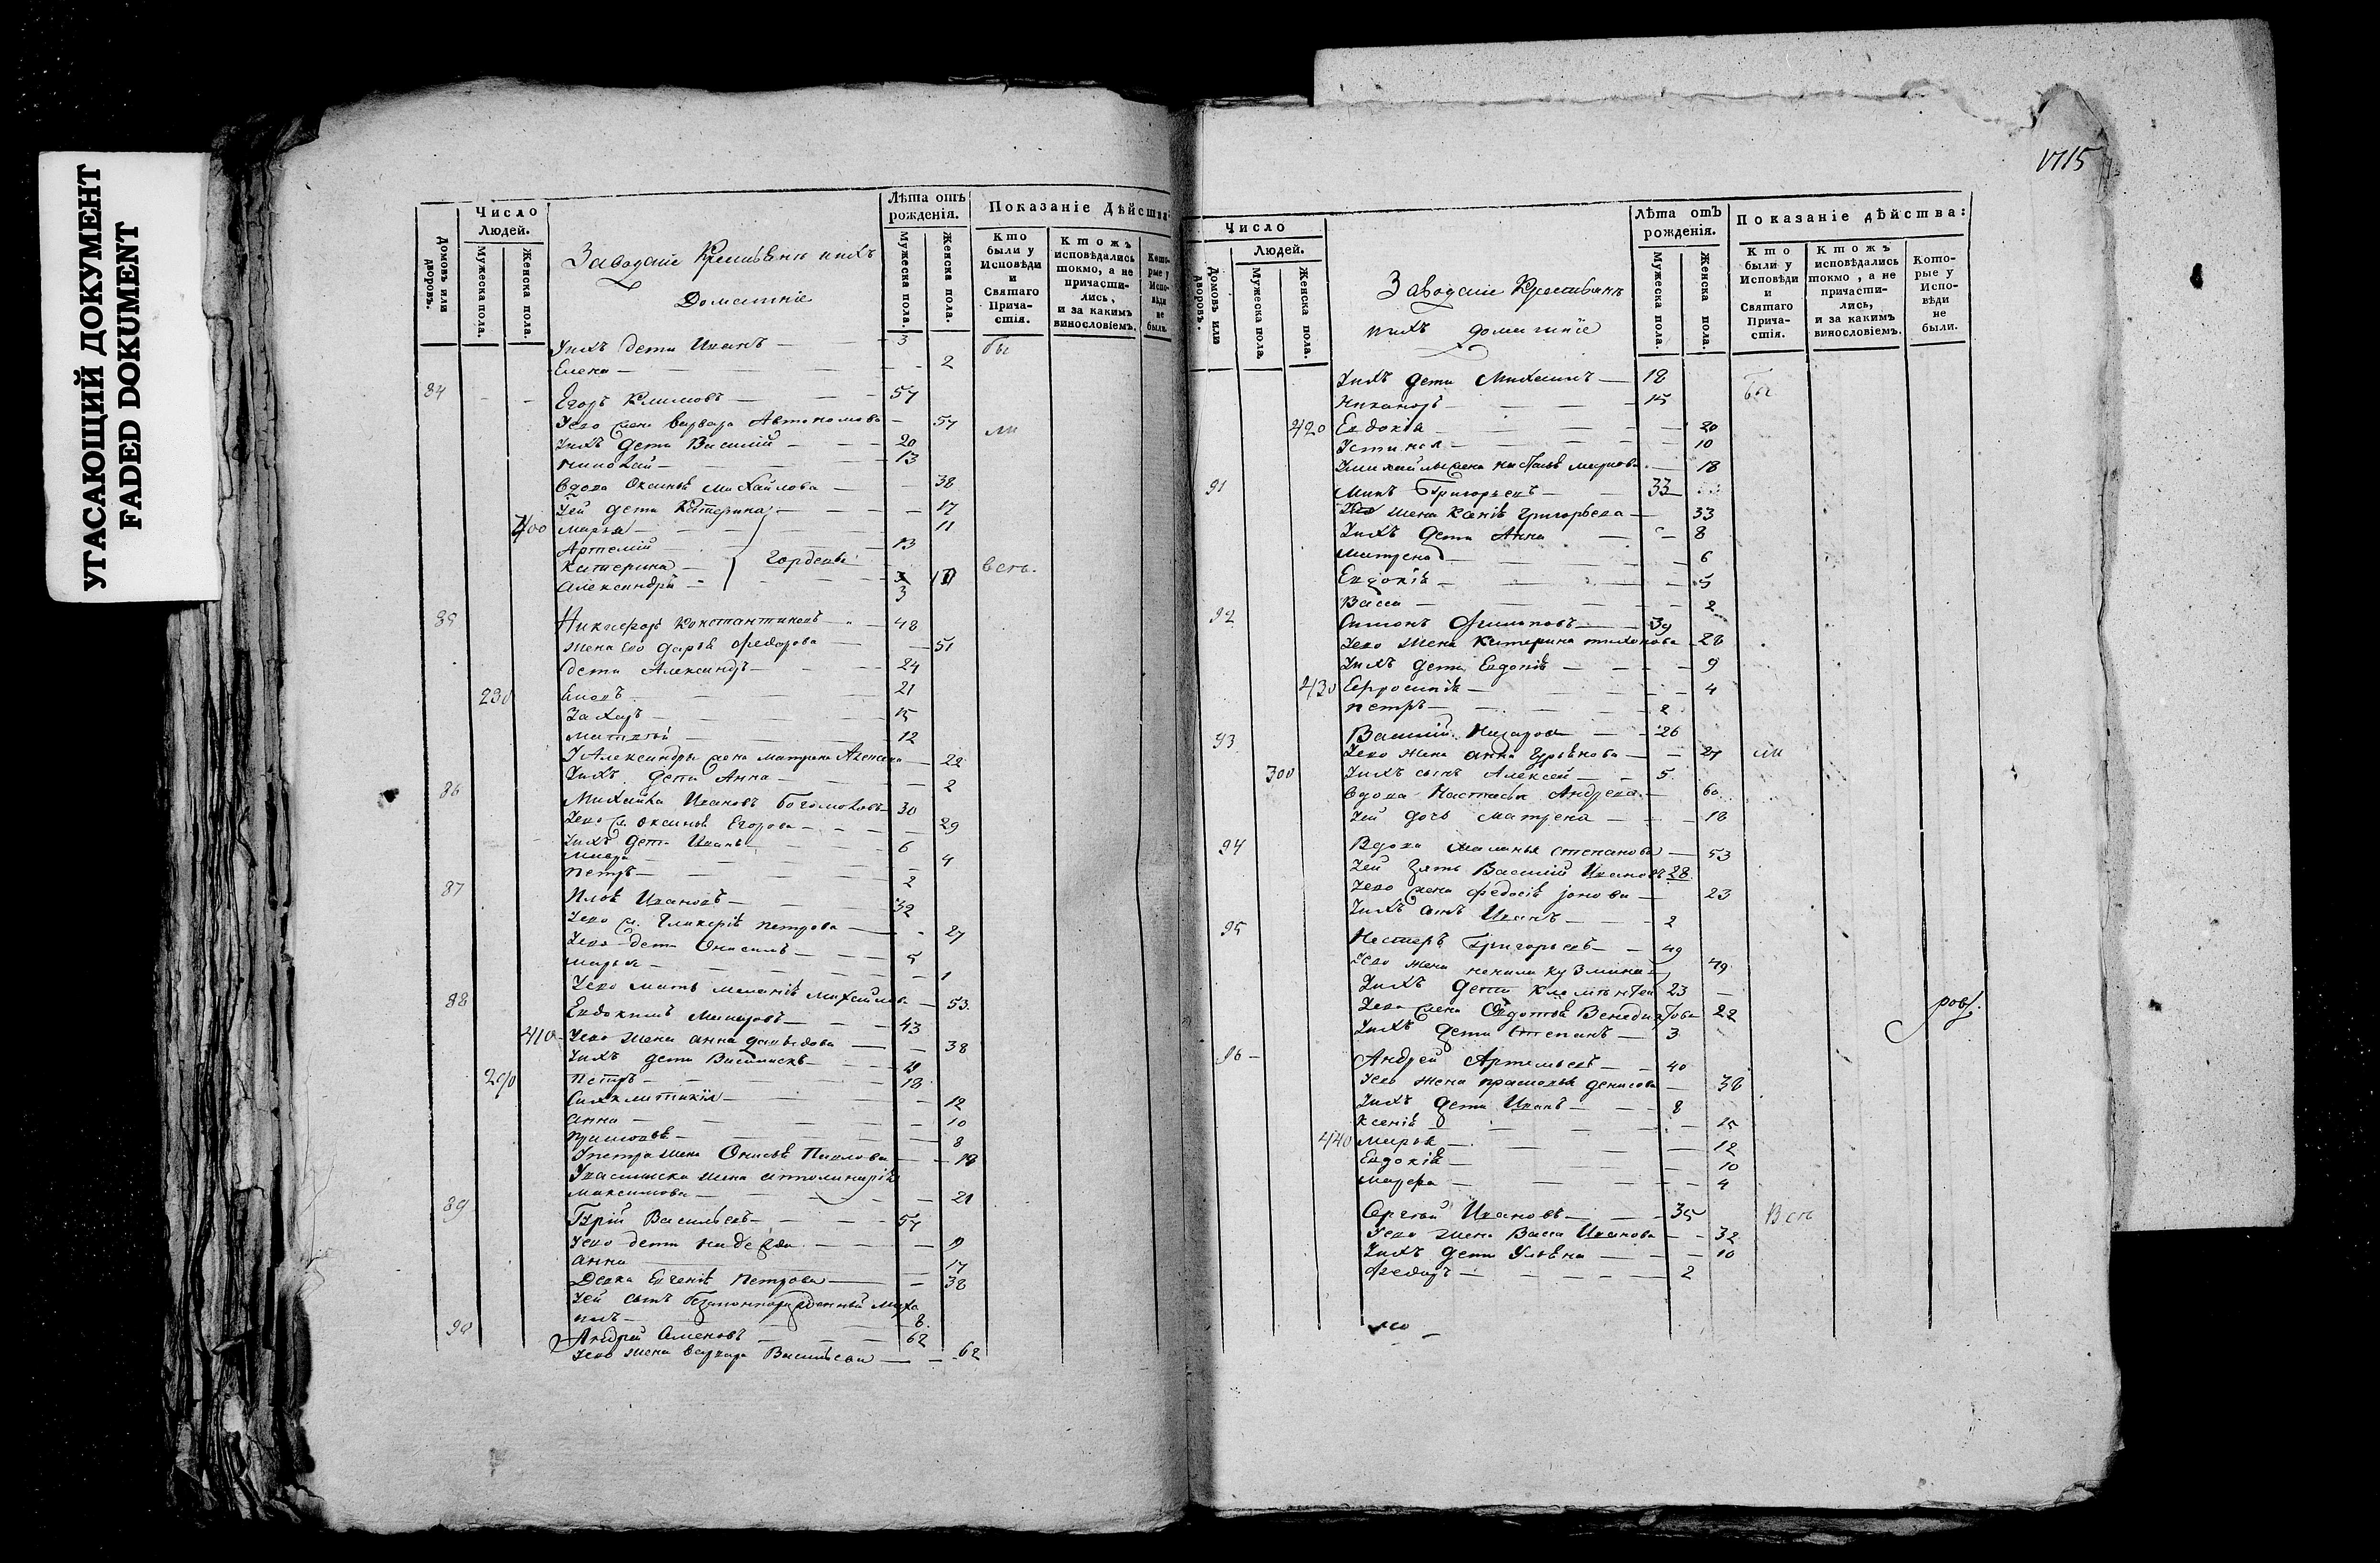 УГАСАЮЩИЙ ДОКУМЕНТ
FADED DOKUMENT
Домовъ или дворовъ.
Число Людей.
Мужеска пола.
Женска пола.
Заводскіе Крестьяне ихъ
Домашніе
Лѣта отъ рожденія.
Мужеска пола.
Женска пола.
Показаніе Дѣйства:
Кто были у Исповѣди и Святаго Причастія.
Ктожъ исповѣдались токмо, а не причастились, и за какимъ винословіемъ.
Которые у Исповѣди не были.
Уихъ дети Иванъ 3 бы
Елена 2
84 Егоръ Климовъ 57
Уево жена Варвара Автономова 57
Уихъ дети Василий 20 ли
Николай 13
Вдова Оксинья Михайлова 38
Уей дети Катерина 17
400 Марья 11
Артемий 13
Катерина Гордеевы
Александръ 3
85 Никифоръ Константиновъ 48
Жена ево Дарья Федорова 51
дети Александръ 24
Захаръ 15
12
У Александра жена Матрена 22
Уихъ дети Анна 2
86 Михайла Ивановъ Богомоловъ 30
Уево ж. Оксинья Егорова 29
Уихъ дети Иванъ 6
4
Петръ 2
87 Ивановъ 32
Уево ж. Гликерія Петрова 27
Уево дети Онисимъ 5
Марья 1
Уево мать Меланія Михайлова 53
88 Евдокимъ 43
410 Уево жена Анна Давыдова 38
Уихъ дети
290 Петръ 18
Синклитикія 12
Анна 10
Прасковья 8
У Петра жена Онисья Павлова 18
Максимова 21
89 Гурій Васильевъ 57
Уево дети Надежда
Анна 17
Девка Евгенія Петрова 38
Уей сынъ безаконнорожденный Миха
илъ 8
90 Андрей Семеновъ 62
Уево жена Варвара Васильева 62
1715
Число Людей.
Домовъ или дворовъ.
Мужеска пола.
Женска пола.
Заводскіе Крестьяне
ихъ домашніе
Лѣта отъ рожденія.
Мужеска пола.
Женска пола.
Показаніе дѣйства:
Кто были у Исповѣди и Святаго Причастія.
Ктожъ исповѣдались токмо, а не причастились, и за какимъ винословіемъ.
Которые у Исповѣди не были.
Уихъ дети Михаилъ 18 бы
Никаноръ 15
420 Евдокія 20
Устинья 10
У Михайлы жена Настасья 18
91 Григорьевъ 33
жена Ксенія Григорьева 33
Уихъ дети Анна 8
Матрена 6
Евдокія 5
Васса 2
92 Симонъ Филиповъ 39
Уево жена Катерина Тихонова 28
Уихъ дети Евдокія 9
430 Ефросинія 4
Петръ 2
93 Василий Назаровъ 26
Уево жена Анна 27 ли
300 Уихъ сынъ Алексей 5
Вдова Настасья Андреева 60
Уей дочь Матрена 18
94 Вдова Маланья Степанова 53
Уей зять Василий Ивановъ 28
Уево жена Федосія 23
Уихъ сынъ Иванъ 2
95 Нестеръ Григорьевъ 49
Уево жена Кузмина 49
Уихъ дети Климентей 23
Уево жена Федотья Венедиктова 22
Уихъ дети Степанъ 3
96 Андрей Артемьевъ 40
Уево жена Прасковья Денисова 38
Уихъ дети Иванъ 8
Ксенія 15
440 Марья 12
Евдокія 10
4
Сергей Ивановъ 35
Уево жена Васса Иванова 32
Уихъ дети Ульяна 10
Федоръ 2